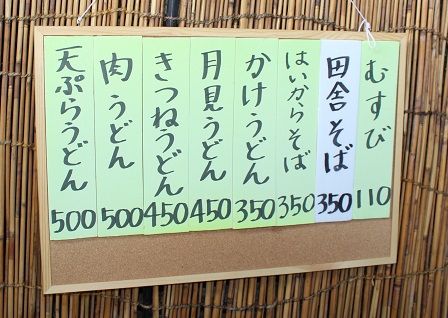 むすび 110
田舎そば 350
はいからそば 350
かけうどん 350
月見うどん 450
きつねうどん 450
肉うどん 500
天ぷらうどん 500